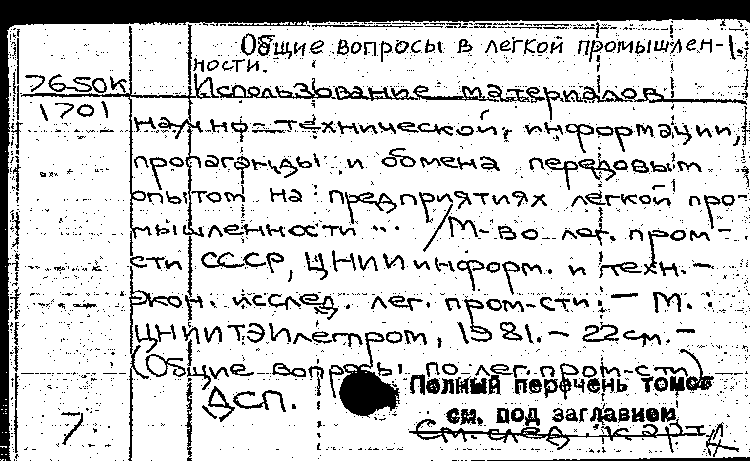 Общие вопросы в легкой промышлен-1.
ности.
76-50К
1701
Использование материалов
научно-технической, информации,
пропаганды и обмена передовым
опытом на предприятиях легкой про-
мышленности ... / М-во лег. пром-
сти СССР, ЦНИИ информ. и техн.-
экон. исслед. лег. пром-сти. - М. :
ЦНИИТЭИлегпром, 1981. - 22 см. -
(Общие вопросы по лег. пром-сти)
ДСП.
Полный перечень томов
см. под заглавием
См. след. карт.
7